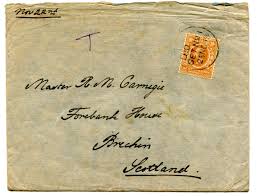 Nov 22nd
T
Master R. M. Carnegie
Forebank House
Brechin
Scotland.